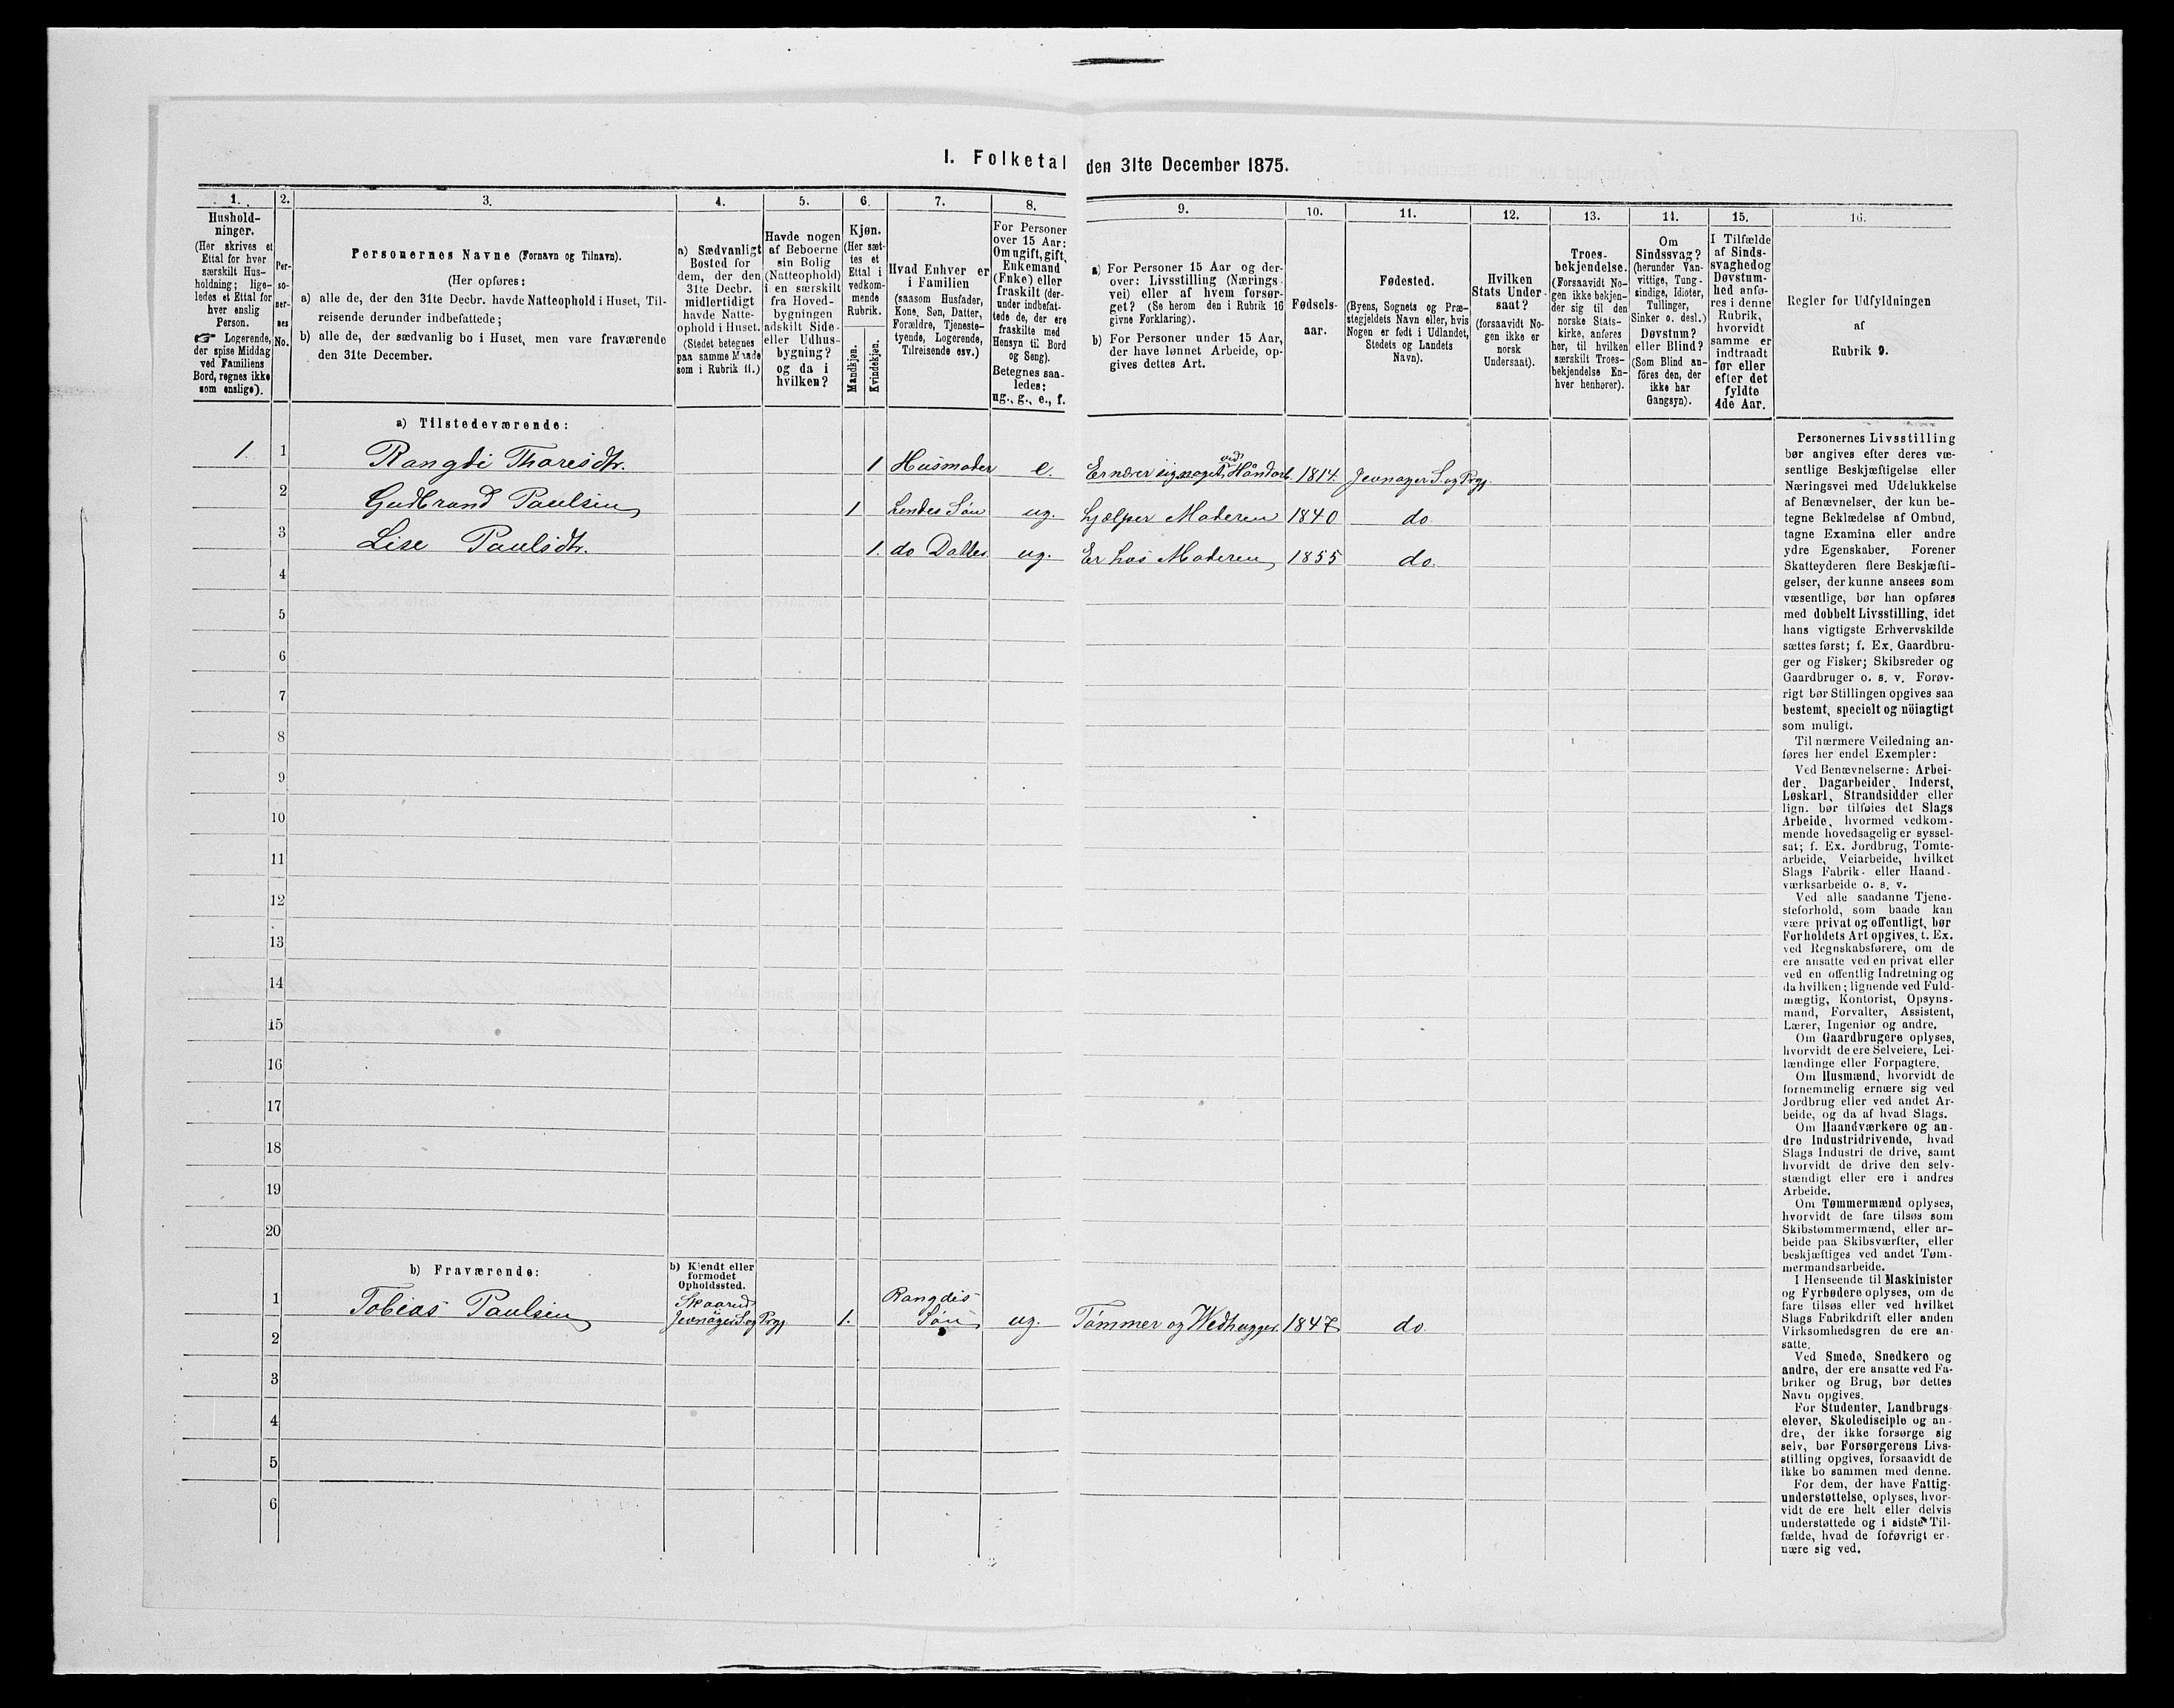 I. Folketal den 31te December 1875.
1. 2. 3. 4. 5. 6. 7. 8. 9. 10. 11. 12. 13. 14. 15. 16.
Hushold-
ninger.
(Her skrives et
Ettal for hver
særskilt Hus-
holdning; lige-
ledes et Ettal for
hver enslig
Person.
☞ Logerende,
der spise Middag
ved Familiens
Bord, regnes ikke
som enslige).
Per-
so-
ner-
nes
No.
Personernes Navne (Fornavn og Tilnavn).
(Her opføres:
a) alle de, der den 31te Decbr. havde Natteophold i Huset, Til-
reisende derunder indbefattede;
b) alle de, der sædvanlig bo i Huset, men vare fraværende
den 31te December.
a) Sædvanligt
Bosted for
dem, der den
31te Decbr.
midlertidigt
havde Natte-
ophold i Huset.
(Stedet betegnes
paa samme Maade
som i Rubrik 11.)
Havde nogen
af Beboerne
sin Bolig
(Natteophold)
i en særskilt
fra Hoved-
bygningen
adskilt Side-
eller Udhus-
bygning?
og da i
hvilken?
Kjøn.
(Her sæt-
tes et
Ettal i
vedkom-
mende
Rubrik.
Mandkjøn.
Kvindekjøn.
Hvad Enhver er
i Familien
(saasom Husfader,
Kone, Søn, Datter,
Forældre, Tjeneste-
tyende, Logerende,
Tilreisende osv.)
For Personer
over 15 Aar:
Om ugift, gift,
Enkemand
(Enke) eller
fraskilt (der-
under indbefat-
tede de, der ere
fraskilte med
Hensyn til Bord
og Seng).
Betegnes saa-
ledes:
ug., g., e., f.
a) For Personer 15 Aar og der-
over: Livsstilling (Nærings-
vei) eller af hvem forsør-
get? (Se herom den i Rubrik 16
givne Forklaring).
b) For Personer under 15 Aar,
der have lønnet Arbeide, op-
gives dettes Art.
Fødsels-
aar.
Fødested.
(Byens, Sognets og Præ-
stegjeldets Navn eller, hvis
Nogen er født i Udlandet,
Stedets og Landets
Navn).
Hvilken
Stats Under-
saat?
(forsaavidt No-
gen ikke er
norsk
Undersaat).
Troes-
bekjendelse.
(Forsaavidt No-
gen ikke bekjen-
der sig til den
norske Stats-
kirke, anføres
her, til hvilken
særskilt Troes-
bekjendelse En-
hver henhører).
Om
Sindssvag?
(herunder Van-
vittige, Tung-
sindige, Idioter,
Tullinger,
Sinker o. desl.)
Døvstum?
eller Blind?
(Som Blind an-
føres den, der
ikke har
Gangsyn).
I Tilfælde
af Sinds-
svaghed og
Døvstum-
hed anfø-
res i denne
Rubrik,
hvorvidt
samme er
indtraadt
før eller
efter det
fyldte
4de Aar.
Regler for Udfyldningen
af
Rubrik 9.
a) Tilstedeværende:
1 1 Rangdi Tharesdtr. 1 Husmoder e. Ernærer sig noget ved Håndarb. 1814. Jevnager S. og Prgj.
2 Gudbrand Paulsen 1 Hendes Søn ug. hjælper Moderen 1840 do.
3 Lise Paulsdtr. 1. do Datter ug. Er hos Moderen 1855 do.
4
5
6
7
8
9
10
11
12
13
14
15
16
17
18
19
20
b) Fraværende:
b) Kjendt eller
formodet
Opholdssted.
1 Tobias Paulsen Jevnager S. og Prgj. 1. Rangdis Søn ug. Tømmer og Vedhugger. 1847 do.
2
3
4
5
6
Personernes Livsstilling
bør angives efter deres væ-
sentlige Beskjæftigelse eller
Næringsvei med Udelukkelse
af Benævnelser, der kun be-
tegne Beklædelse af Ombud,
tagne Examina eller andre
ydre Egenskaber. Forener
Skatteyderen flere Beskjæfti-
gelser, der kunne ansees som
væsentlige, bør han opføres
med dobbelt Livsstilling, idet
hans vigtigste Erhvervskilde
sættes først; f. Ex. Gaardbru-
ger og Fisker; Skibsreder og
Gaardbruger o. s. v. Forøv-
rigt bør Stillingen opgives saa
bestemt, specielt og nöiagtigt
som muligt.
Til nærmere Veiledning an-
føres her endel Exempler:
Ved Benævnelserne: Arbei-
der, Dagarbeider, Inderst,
Løskarl, Strandsidder eller
lign. bør tilføies det Slags
Arbeide, hvormed vedkom-
mende hovedsagelig er syssel-
sat; f. Ex. Jordbrug, Tomte-
arbeide, Veiarbeide, hvilket
Slags Fabrik- eller Haand-
værksarbeide o. s. v.
Ved alle saadanne Tjene-
steforhold, som baade kan
være privat og offentligt, bør
Forholdets Art opgives, t. Ex.
ved Regnskabsførere, om de
ere ansatte ved en privat eller
ved en offentlig Indretning og
da hvilken; lignende ved Fuld-
mægtig, Kontorist, Opsyns-
mand, Forvalter, Assistent,
Lærer, Ingeniør og andre.
Om Gaardbrugere oplyses,
hvorvidt de ere Selveiere, Lei-
lændinge eller Forpagtere.
Om Husmænd, hvorvidt de
fornemmelig ernære sig ved
Jordbrug eller ved andet Ar-
beide, og da af hvad Slags.
Om Haandværkere og an-
dre Industridrivende, hvad
Slags Industri de drive, samt
hvorvidt de drive den selv-
stændigt eller ere i andres
Arbeide.
Om Tømmermænd oplyses,
hvorvidt de fare tilsøs som
Skibstømmermænd, eller ar-
beide paa Skibsværfter, eller
beskjæftiges ved andet Tøm-
mermandsarbeide.
I Henseende til Maskinister
og Fyrbødere oplyses, om de
fare tilsøs eller ved hvilket
Slags Fabrikdrift eller anden
Virksomhedsgren de ere an-
satte.
Ved Smede, Snedkere og
andre, der ere ansatte ved Fa-
briker og Brug, bør dettes
Navn opgives.
For Studenter, Landbrugs-
elever, Skoledisciple og an-
dre, der ikke forsørge sig
selv, bør Forsørgerens Livs-
stilling opgives, forsaavidt de
ikke bo sammen med denne.
For dem, der have Fattig-
understøttelse, oplyses, hvor-
vidt de ere helt eller delvis
understøttede og i sidste Til-
fælde, hvad de forøvrigt er-
nære sig ved.